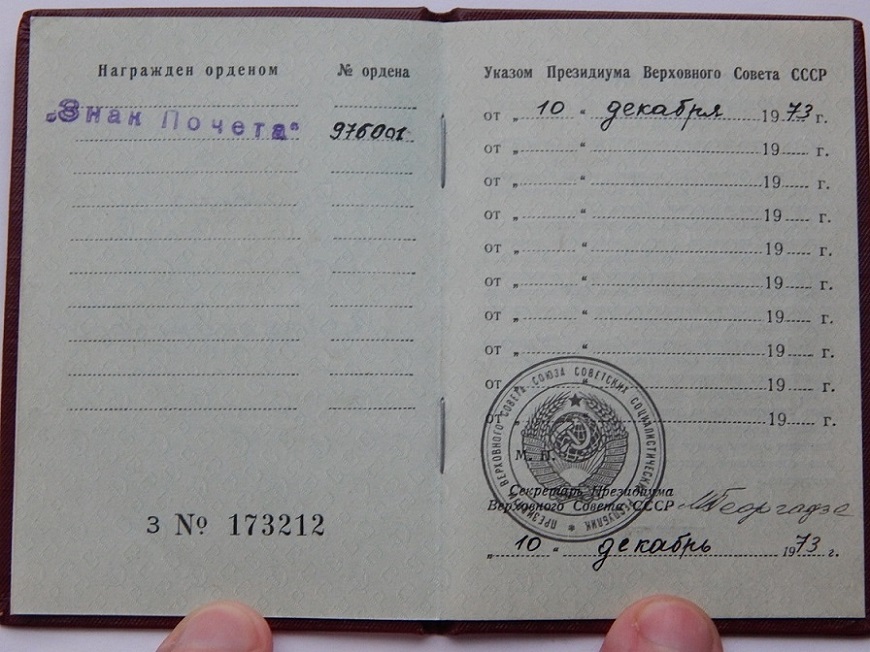 Награжден орденом № ордена
„Знак Почета“ 976001
З № 173212
Указом Президиума Верховного Совета СССР
от „ 10 “ декабря 1973 г.
от „ “ 19 г.
от „ “ 19 г.
от „ “ 19 г.
от „ “ 19 г.
от „ “ 19 г.
от „ “ 19 г.
от „ “ 19 г.
от „ “ 19 г.
от „ “ 19 г.
ПРЕЗИДИУМ ВЕРХОВНОГО СОВЕТА СОЮЗА СОВЕТСКИХ СОЦИАЛИСТИЧЕСКИХ РЕСПУБЛИК
М. П.
Секретарь Президиума
Верховного Совета СССР МГеоргадзе
„ 10 “ декабрь 1973 г.